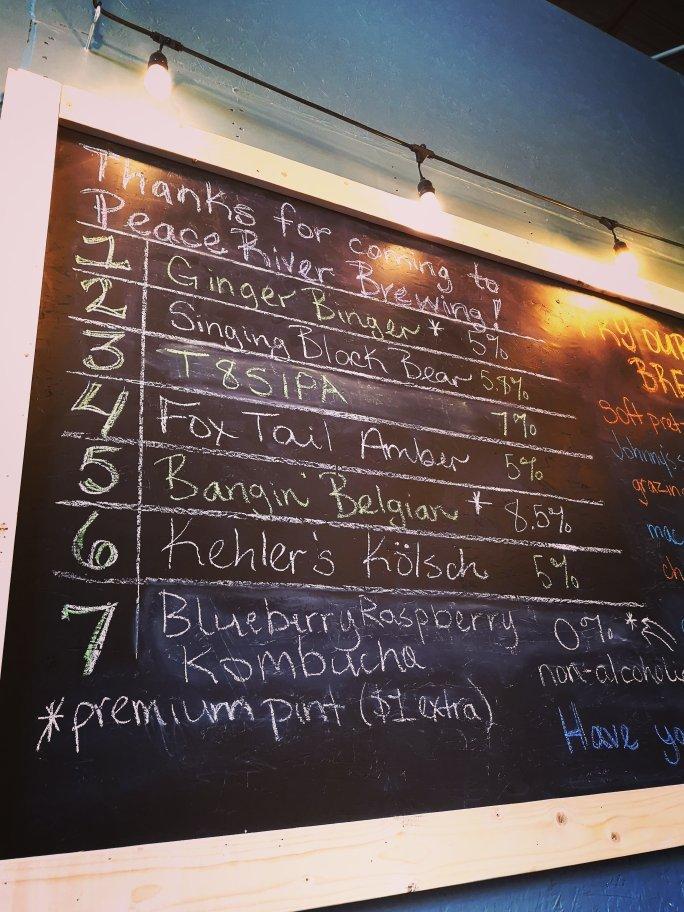 Thanks for coming to
Peace River Brewing!
1 Ginger Binger * 5%
2 Singing Block Bear 5%
3 T8SIPA 7%
4 Fox Tail Amber 5%
5 Bangin' Belgian * 8.5%
6 Kehler's Kölsch 5%
7 Blueberry Raspberry 0% *
Kombucha non-alcoholic
*premium pint ($1 extra)
RY OUR
BRE
Soft pret
Johnny's s
grazing
mac
ch
Have yo